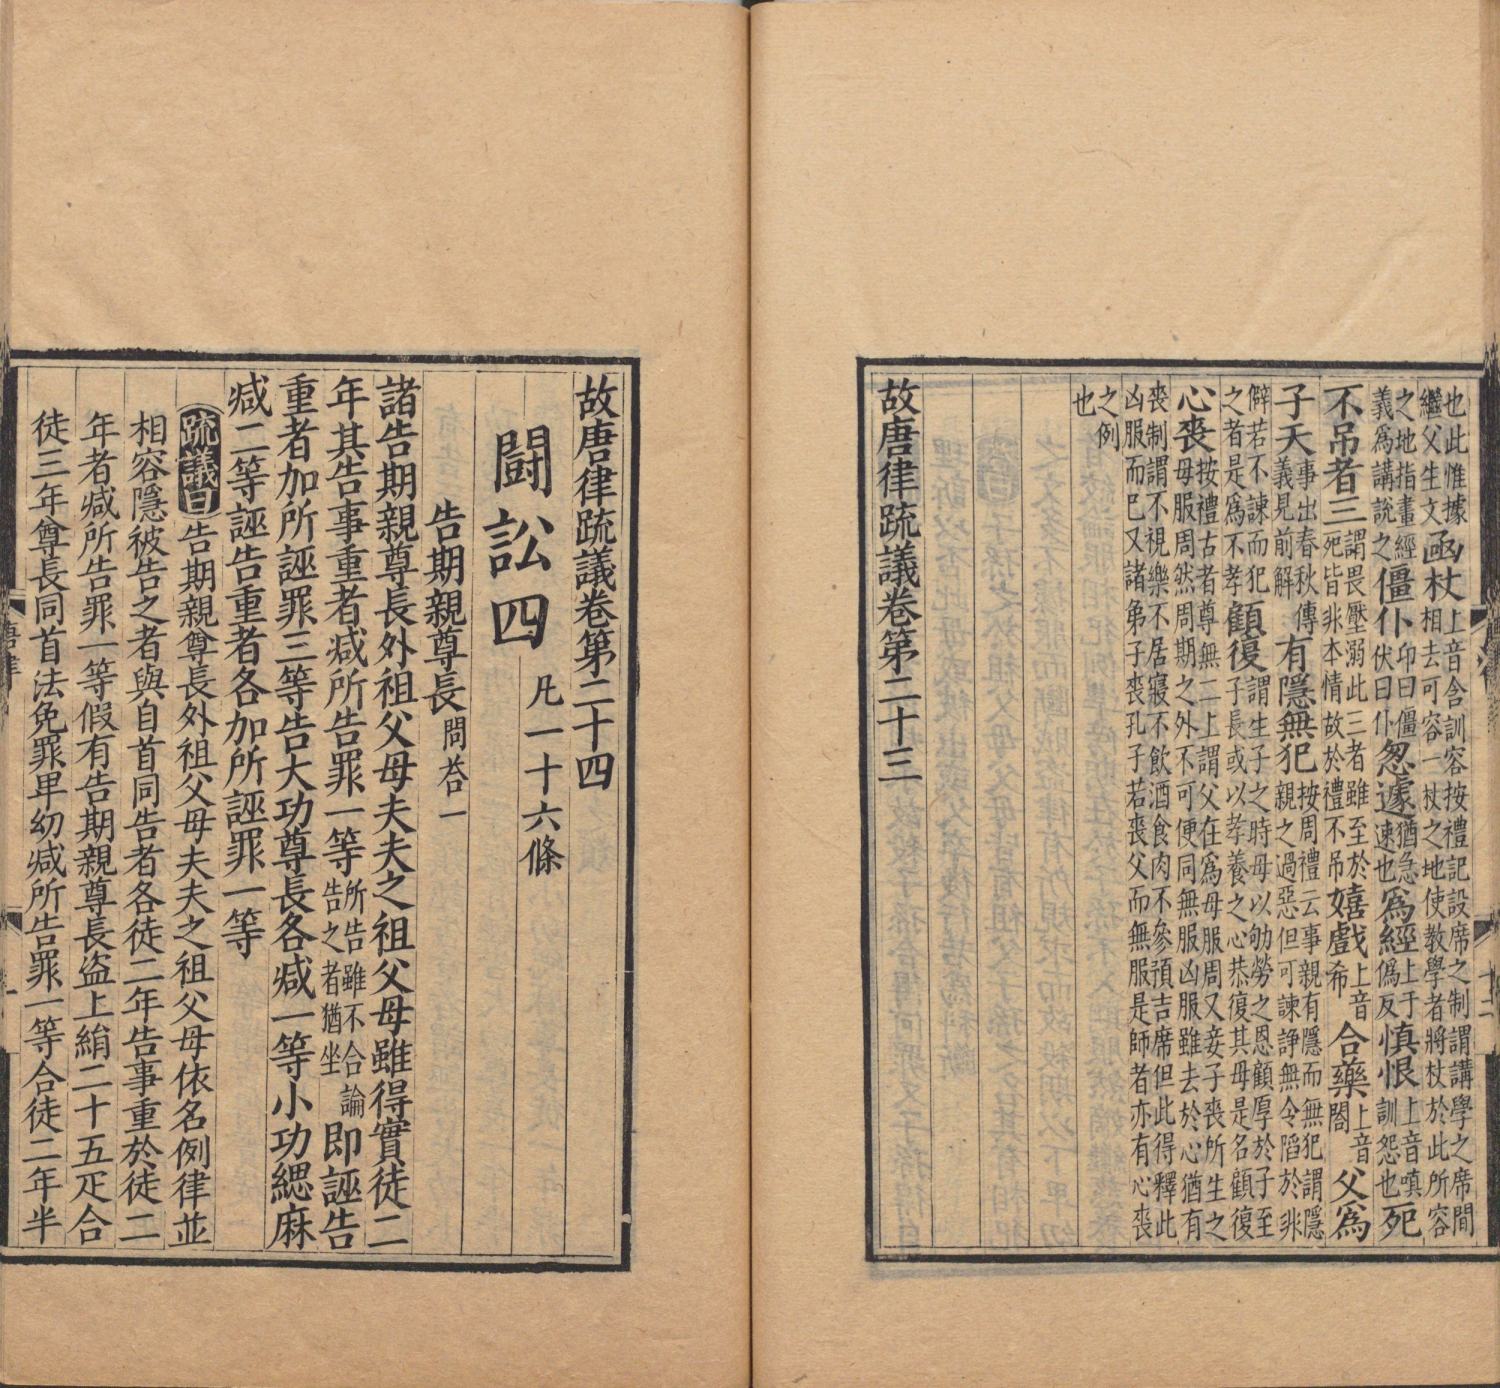 也此惟據
繼父生文
函杖
上音含訓容按禮記設席之制謂講學之席間
相去可容一杖之地使教學者將杖於此所容
之地指畫經
義爲講說之
僵仆
卬曰僵
伏曰仆
怱遽
猶急
速也
爲經
上于
僞反
慎恨
上音嗔
訓怨也
死
不吊者三
謂畏壓溺此三者雖至於
死皆非本情故於禮不吊
嬉戲
上音
希
合藥
上音
閤
父爲
子天
事出春秋傳
義見前解
有隱無犯
按周禮云事親有隱而無犯謂隱
親之過惡但可諫諍無令陷於非
僻若不諫而犯
之者是爲不孝
顧復
謂生子之時母以劬勞之恩顧厚於子至
子長或以孝養之心恭復其母是名顧復
心喪
按禮古者尊無二上謂父在爲母服周又妾子喪所生之
母服周然周期之外不可便同無服凶服雖去於心猶有
喪制謂不視樂不居寢不飲酒食肉不參預吉席但此得釋此
凶服而已又諸弟子喪孔子若喪父而無服是師者亦有心喪
之例
也
故唐律疏議卷第二十三
故唐律疏議卷第二十四
鬬訟四
凡一十六條
告期親尊長
問荅一
諸告期親尊長外祖父母夫夫之祖父母雖得實徒二
年其告事重者减所告罪一等
所告雖不合論
告之者猶坐
即誣告
重者加所誣罪三等告大功尊長各减一等小功緦麻
减二等誣告重者各加所誣罪一等
疏議曰告期親尊長外祖父母夫夫之祖父母依名例律並
相容隱被告之者與自首同告者各徒二年告事重於徒二
年者减所告罪一等假有告期親尊長盜上絹二十五疋合
徒三年尊長同首法免罪卑幼减所告罪一等合徒二年半